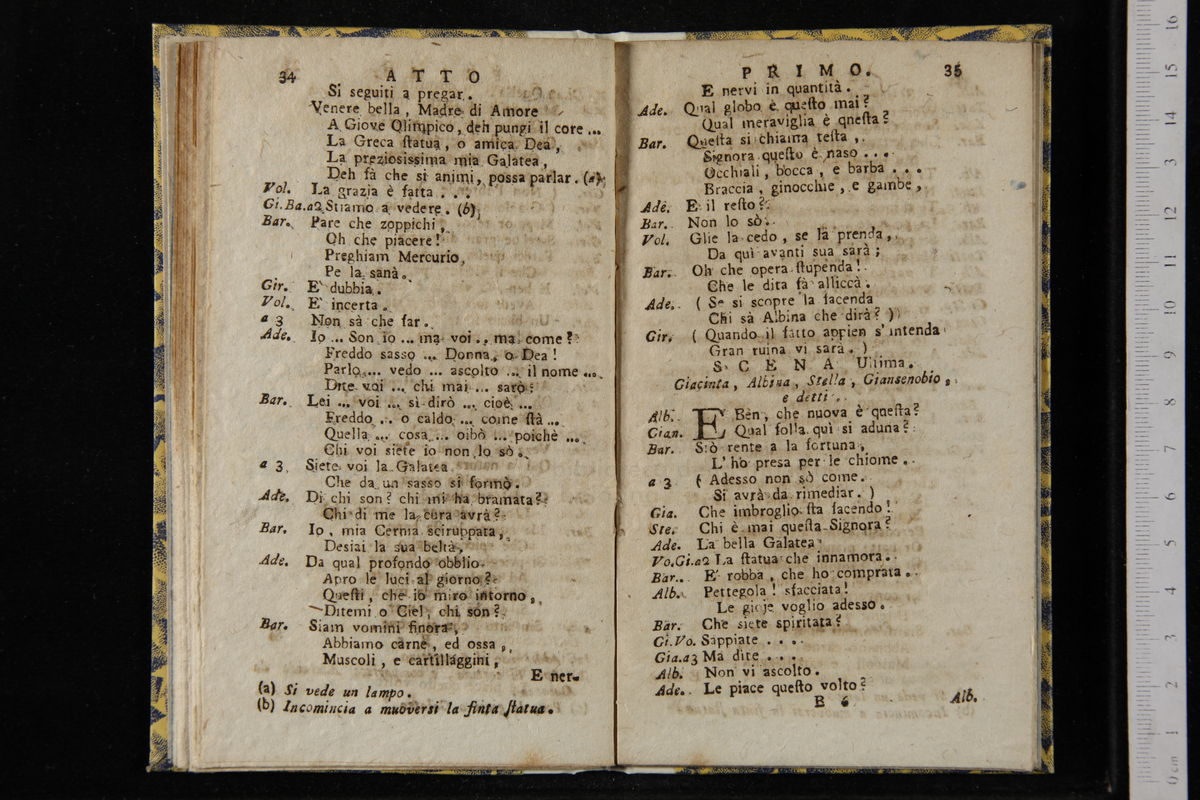 34 ATTO
Si seguiti a pregar.
Venere bella, Madre di Amore
A Giove Olimpico, deh pungi il core ...
La Greca ſtatua, o amica Dea,
La preziosissima mia Galatea,
Deh fà che si animi, possa parlar. (a)
Vol. La grazia è fatta . . .
Gi.Ba.a2 Stiamo a vedere. (b)
Bar. Pare che zoppichi,
Oh che piacere!
Preghiam Mercurio,
Pe la sanà.
Gir. E' dubbia.
Vol. E' incerta.
a 3 Non sà che far.
Ade. Io ... Son io ... ma voi .. ma come?
Freddo sasso ... Donna, o Dea!
Parlo ... vedo ... ascolto ... il nome ...
Dite voi ... chi mai ... sarò?
Bar. Lei ... voi ... sì dirò ... cioè ...
Freddo ... o caldo ... come ſtà ...
Quella ... cosa ... oibò ... poichè ...
Chi voi siete io non lo sò.
a 3 Siete voi la Galatea
Che da un sasso si formò.
Ade. Di chi son? chi mi ha bramata?
Chi di me la cura avrà?
Bar. Io, mia Cernia sciruppata,
Desiai la sua beltà,
Ade. Da qual profondo obblio
Apro le luci al giorno?
Queſti, che io miro intorno,
Ditemi o Ciel, chi son?
Bar. Siam vomini finora,
Abbiamo carne, ed ossa,
Muscoli, e cartillaggini,
E ner-
(a) Si vede un lampo.
(b) Incomincia a muoversi la finta ſtatua.
PRIMO. 35
E nervi in quantità.
Ade. Qual globo è queſto mai?
Qual meraviglia è qneſta?
Bar. Queſta si chiama teſta,
Signora queſto è naso . . .
Occhiali, bocca, e barba . . .
Braccia, ginocchie, e gambe,
Ade. E il reſto?
Bar. Non lo sò.
Vol. Glie la cedo, se la prenda,
Da quì avanti sua sarà;
Bar. Oh che opera ſtupenda!
Che le dita fà alliccà.
Ade. ( Se si scopre la facenda
Chi sà Albina che dirà? )
Gir. ( Quando il fatto appien s'intenda
Gran ruina vi sarà. )
SCENA Ultima.
Giacinta, Albina, Stella, Giansenobio,
e detti.
Alb. E Ben, che nuova è queſta?
Gian. Qual folla quì si aduna?
Bar. Sìò rente a la fortuna,
L'ho presa per le chiome.
a 3 ( Adesso non sò come
Si avrà da rimediar. )
Gia. Che imbroglio ſta facendo!
Ste. Chi è mai queſta Signora?
Ade. La bella Galatea
Vo.Gi.a2 La ſtatua che innamora.
Bar. E' robba, che ho comprata.
Alb. Pettegola! sfacciata!
Le gioje voglio adesso.
Bar. Che siete spiritata?
Gi.Vo. Sappiate . . . .
Gia.a3 Ma dite . . .
Alb. Non vi ascolto.
Ade. Le piace queſto volto?
E 6 Alb.
0 cm 1 2 3 4 5 6 7 8 9 10 11 12 13 14 15 16